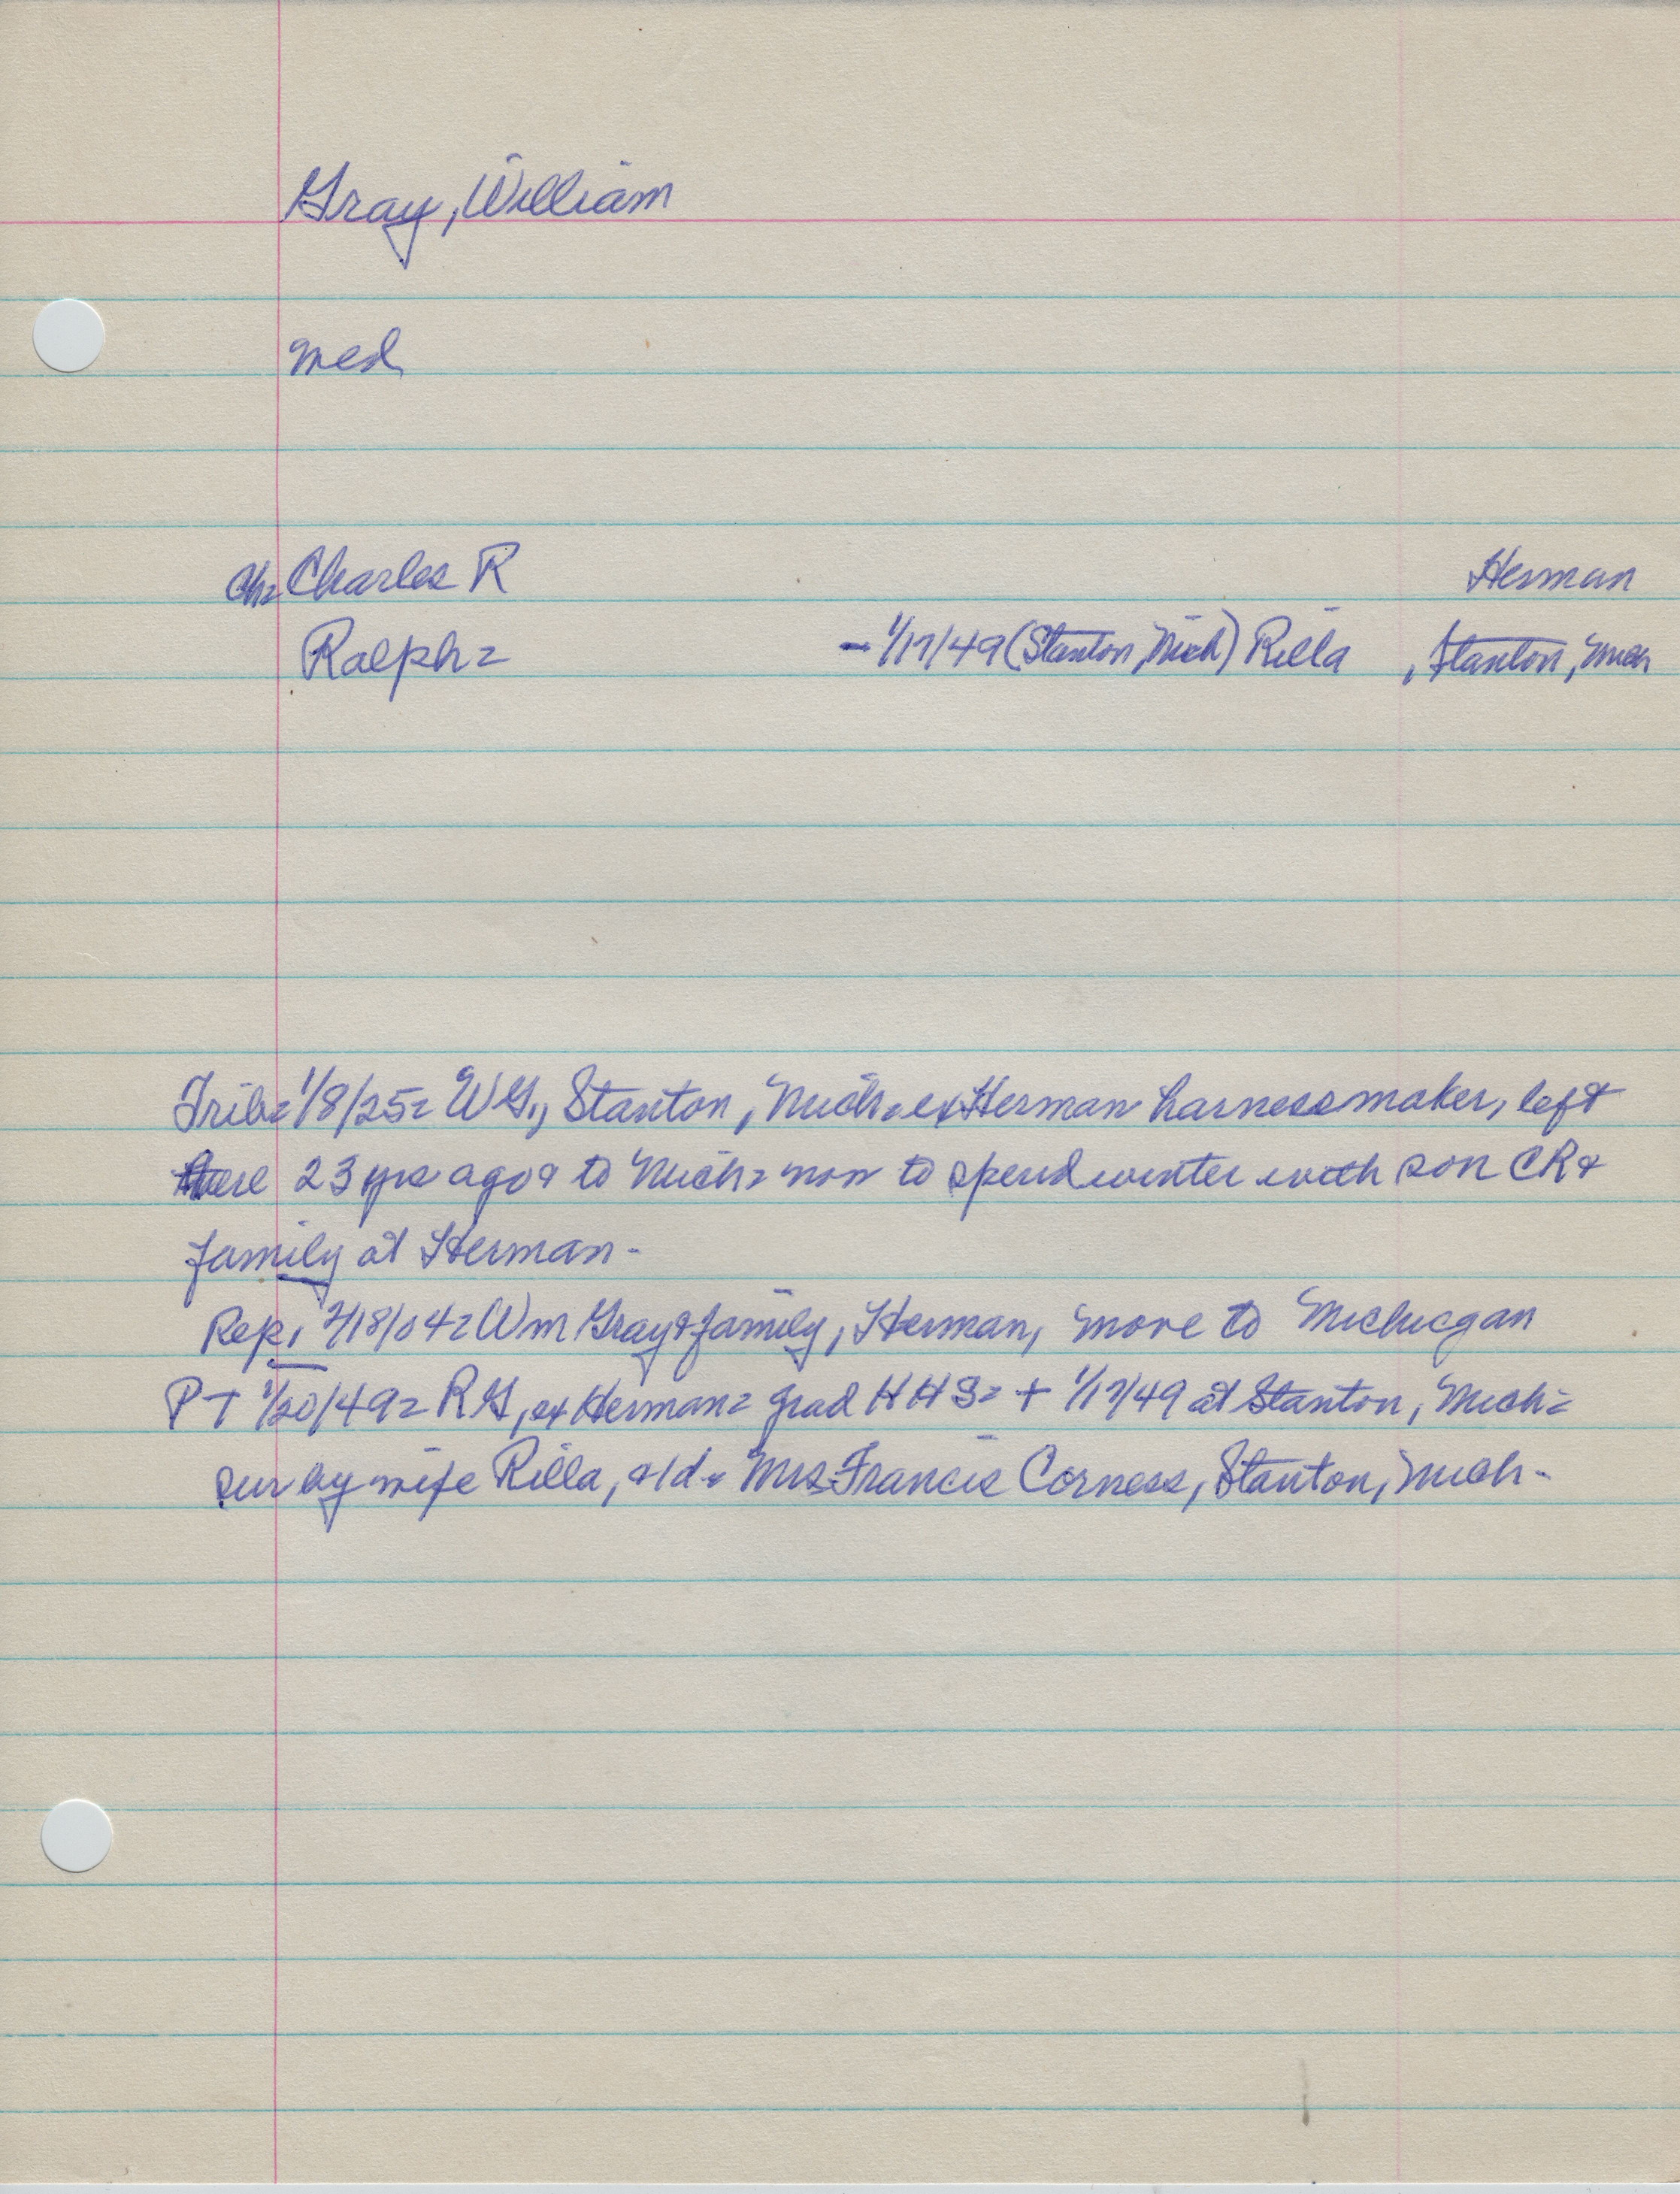 Gray, William
med
Ch= Charles R Herman
Ralph= - 1/17/49 (Stanton, Mich) Rilla , Stanton, Mich
Trib= 1/8/25= WG., Stanton, Mich= ex Herman harnessmaker, left
here 23 yrs ago & to Mich= now to spend winter with son CR &
family at Herman-
Rep, 2/18/04= Wm Gray & family, Herman, move to Michicgan
PT 1/20/49= RG, ex Herman= grad HHS= + 1/17/49 at Stanton, Mich=
sur by wife Rilla, & 1 d= Mrs Francis Corness, Stanton, Mich-